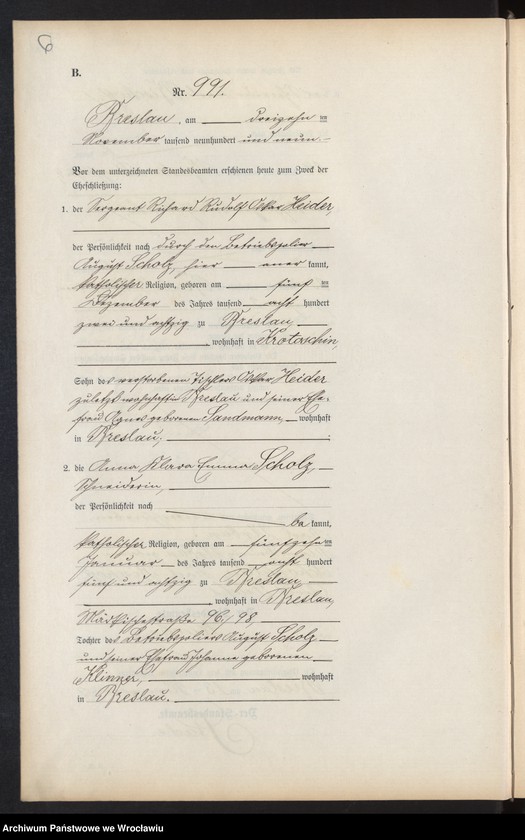 6
B.
Nr. 991.
Breslau, am dreizehn ten
November tausend neunhundert und neun.
Vor dem unterzeichneten Standesbeamten erschienen heute zum Zweck der
Eheschließung:
1. der Sergeant Richard Rudolf Oskar Heider,
der Persönlichkeit nach durch den Betriebspolier
August Scholz, hier aner kannt,
katholischer Religion, geboren am fünf ten
Dezember des Jahres tausend acht hundert
zwei und achtzig zu Breslau
, wohnhaft in Krotoschin,
Sohn des verstorbenen Tischlers Oskar Heider
zuletzt wohnhaft in Breslau und seiner Ehe-
frau Agnes geborenen Sandmann, wohnhaft
in Breslau,
2. die Anna Klara Emma Scholz,
Schneiderin,
der Persönlichkeit nach
be kannt,
katholischer Religion, geboren am fünfzehn ten
Januar des Jahres tausend acht hundert
fünf und achtzig zu Breslau
, wohnhaft in Breslau,
Märkischestraße 96/98,
Tochter des Betriebspoliers August Scholz
und seiner Ehefrau Johanne geborenen
Klinner, wohnhaft
in Breslau.
Archiwum Państwowe we Wrocławiu